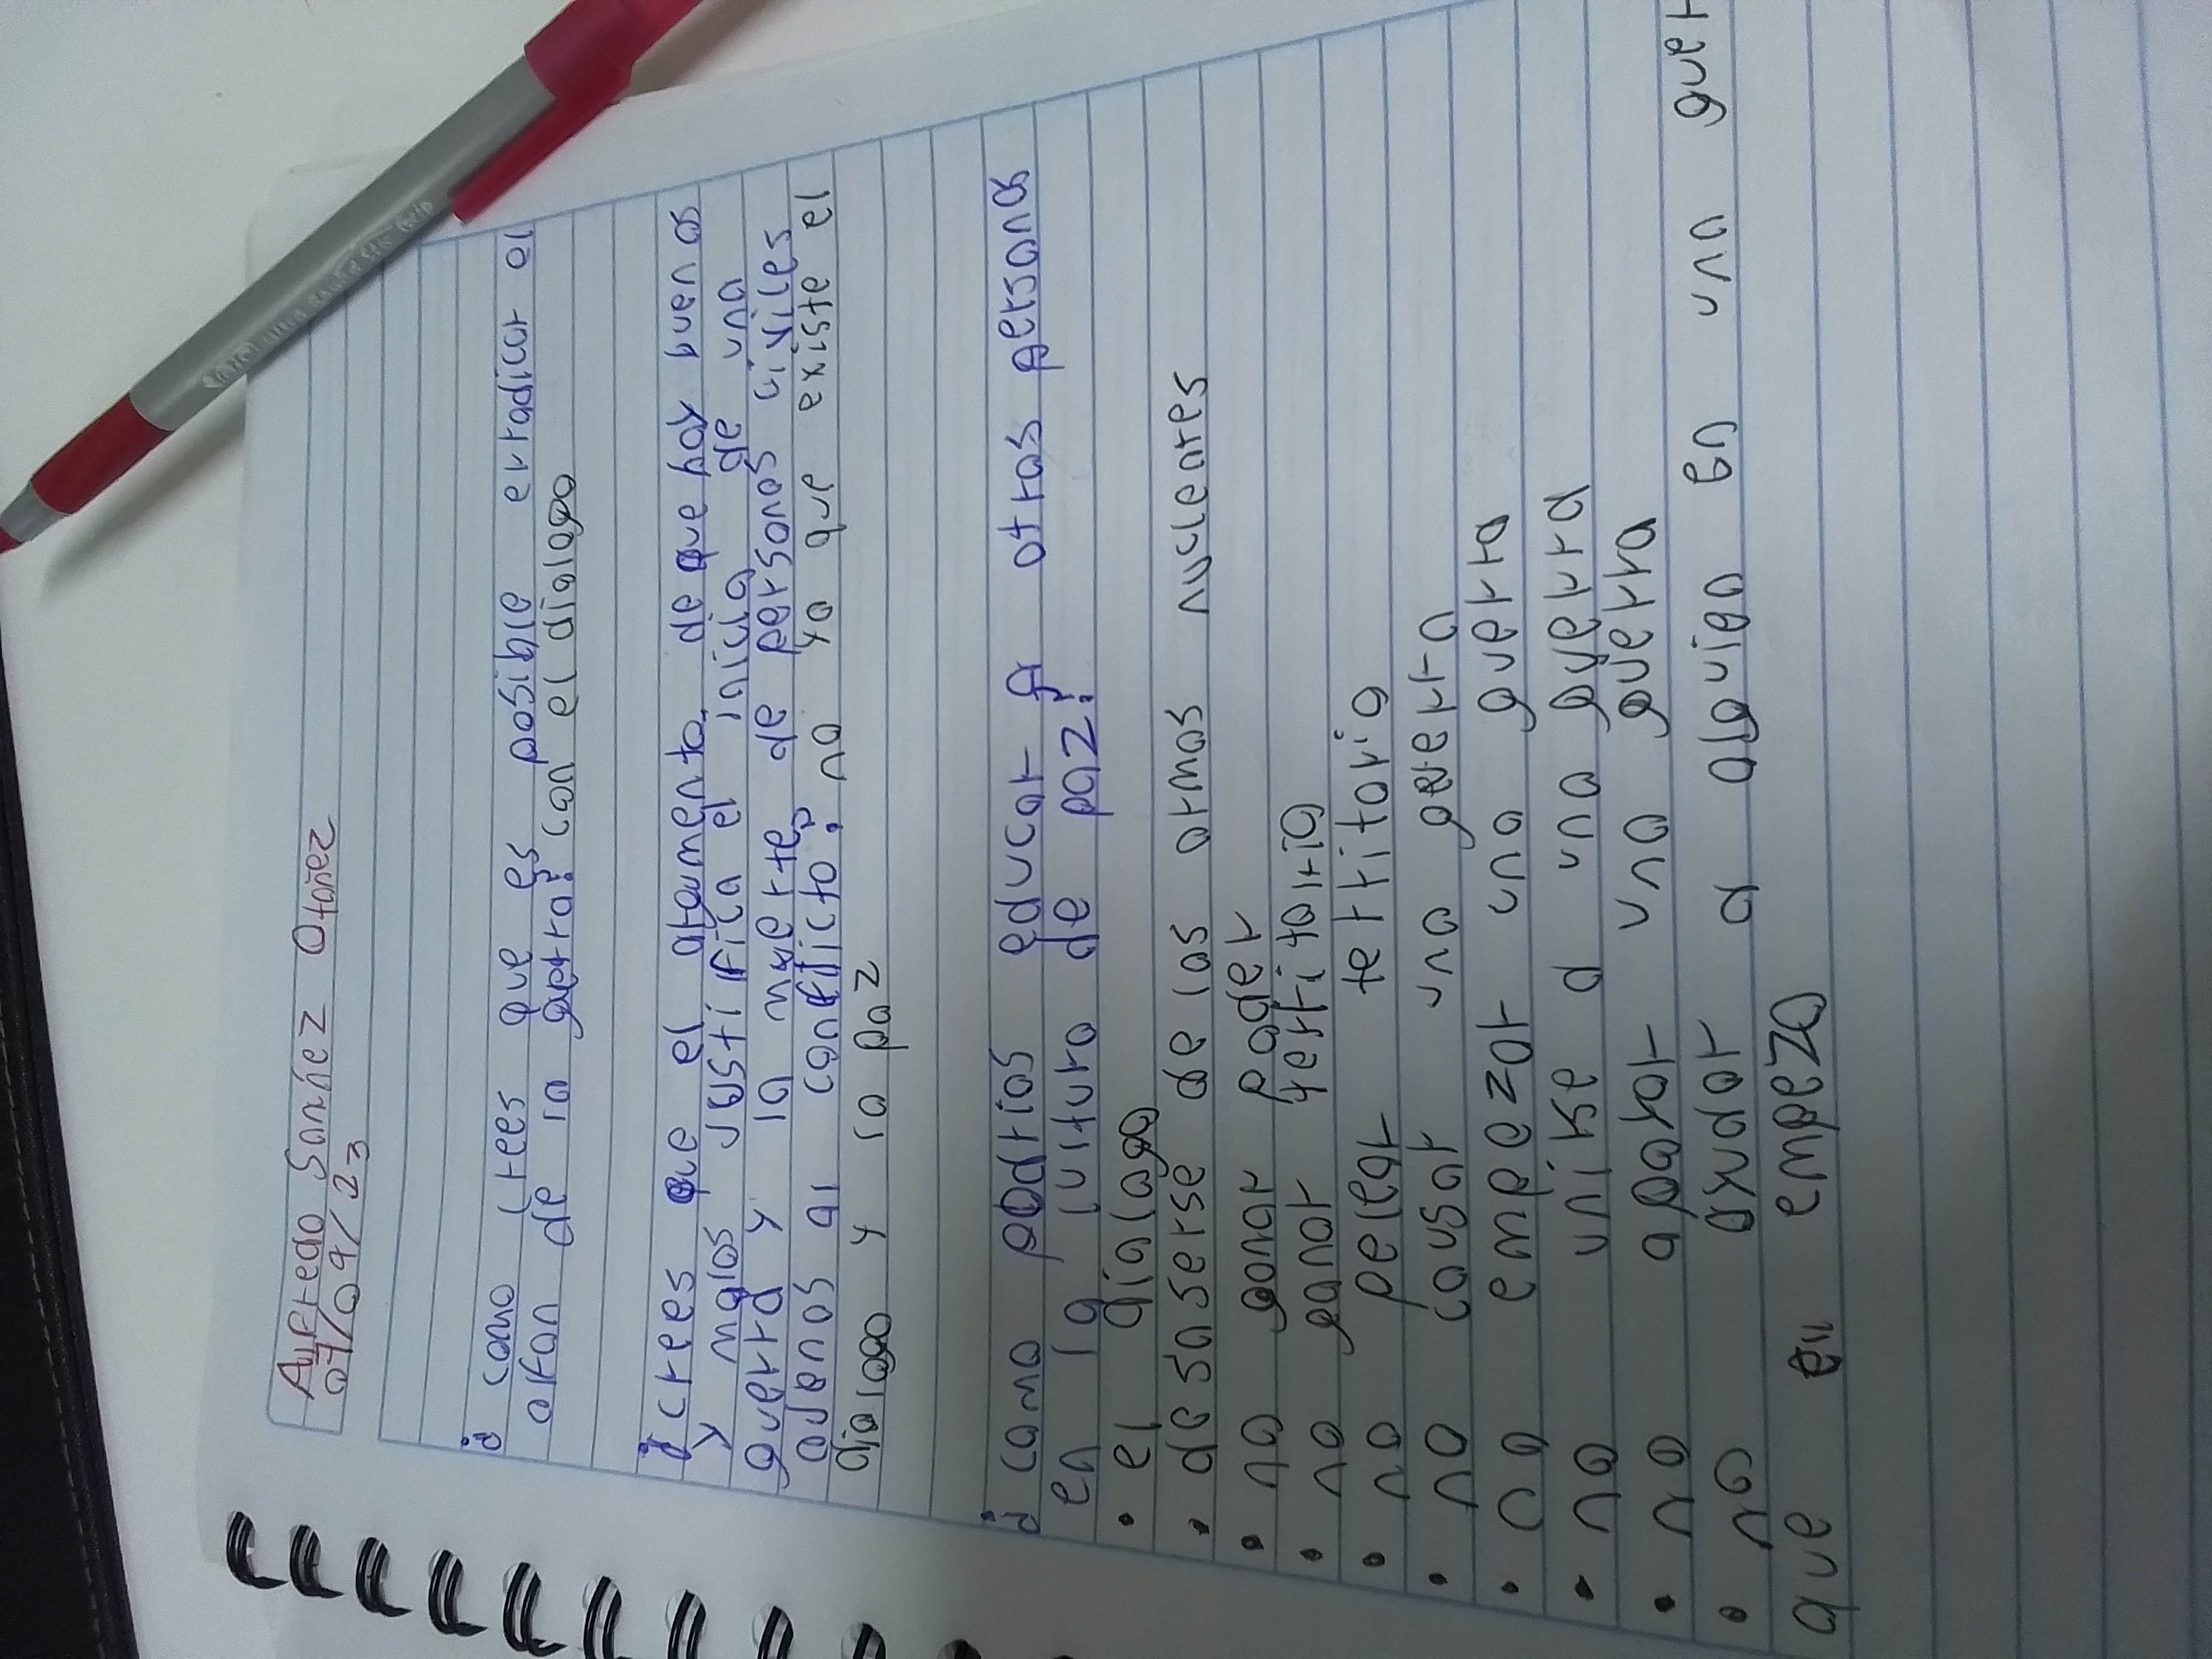 Alfredo Sanxez Otañez
07/09/23
¿como crees que es posible erradicar la
afan de la gerra? con el dialogo
¿crees que el argumento de que hoy guen so
y malos justifica el inicio de una
guerra y la muerte de personas civiles
apauso la conflicto? no ya que existe el
dialogo y la paz
¿como podrias educar a otras persona
en la cultura de paz?
• el dialogo
• desaserse de las armas nucleares
• no ganar poder
• no ganar territorio
• no pelear territorio
• no causar una guerra
• no empezar una guerra
• no unirse a una guerra
• no apoyar una guerra
• no apoyar a alguien en una guerr
que el empeza
Pentel